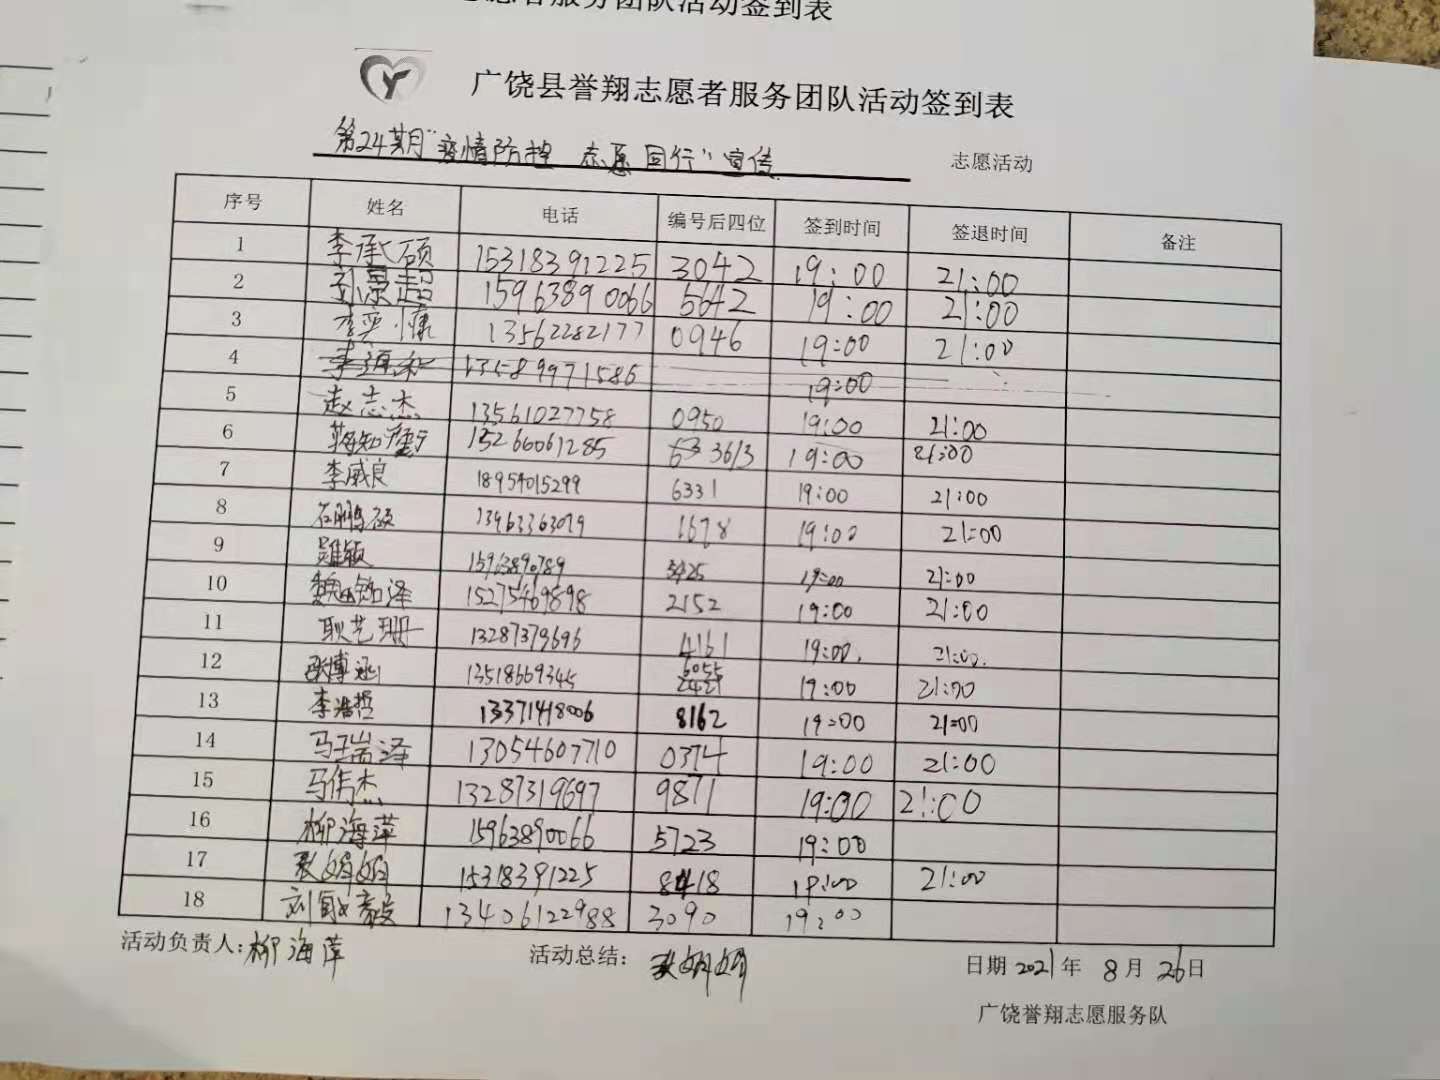 志愿者服务团队活动签到表
广饶县誉翔志愿者服务团队活动签到表
第24期"疫情防控 志愿同行"宣传 志愿活动
序号 姓名 电话 编号后四位 签到时间 签退时间 备注
1 李承硕 15318391225 3042 19:00 21:00
2 刘景超 15963890066 5642 19:00 21:00
3 李奕慷 13562282177 0946 19:00 21:00
4 13589971586 19:00
5 赵志杰 13561027758 0950 19:00 21:00
6 15266061285 3613 19:00 21:00
7 李威良 18954015299 6331 19:00 21:00
8 石鹏硕 13963363079 1678 19:00 21:00
9 15963890789 3425 19:00 21:00
10 魏铭泽 15275469898 2152 19:00 21:00
11 耿艺珊 13287379696 4161 19:00. 21:00.
12 张博涵 13518669345 6055 2421 19:00 21:00
13 李浩哲 13371418006 8162 19:00 21:00
14 马瑞泽 13054607710 0374 19:00 21:00
15 马伟杰 13287319697 9871 19:00 21:00
16 柳海萍 15963890066 5723 19:00
17 耿娟娟 15318391225 8418 19:00 21:00
18 刘毅 13406122988 3090 19:00
活动负责人:柳海萍 活动总结: 耿娟娟 日期 2021年 8月 26日
广饶誉翔志愿服务队